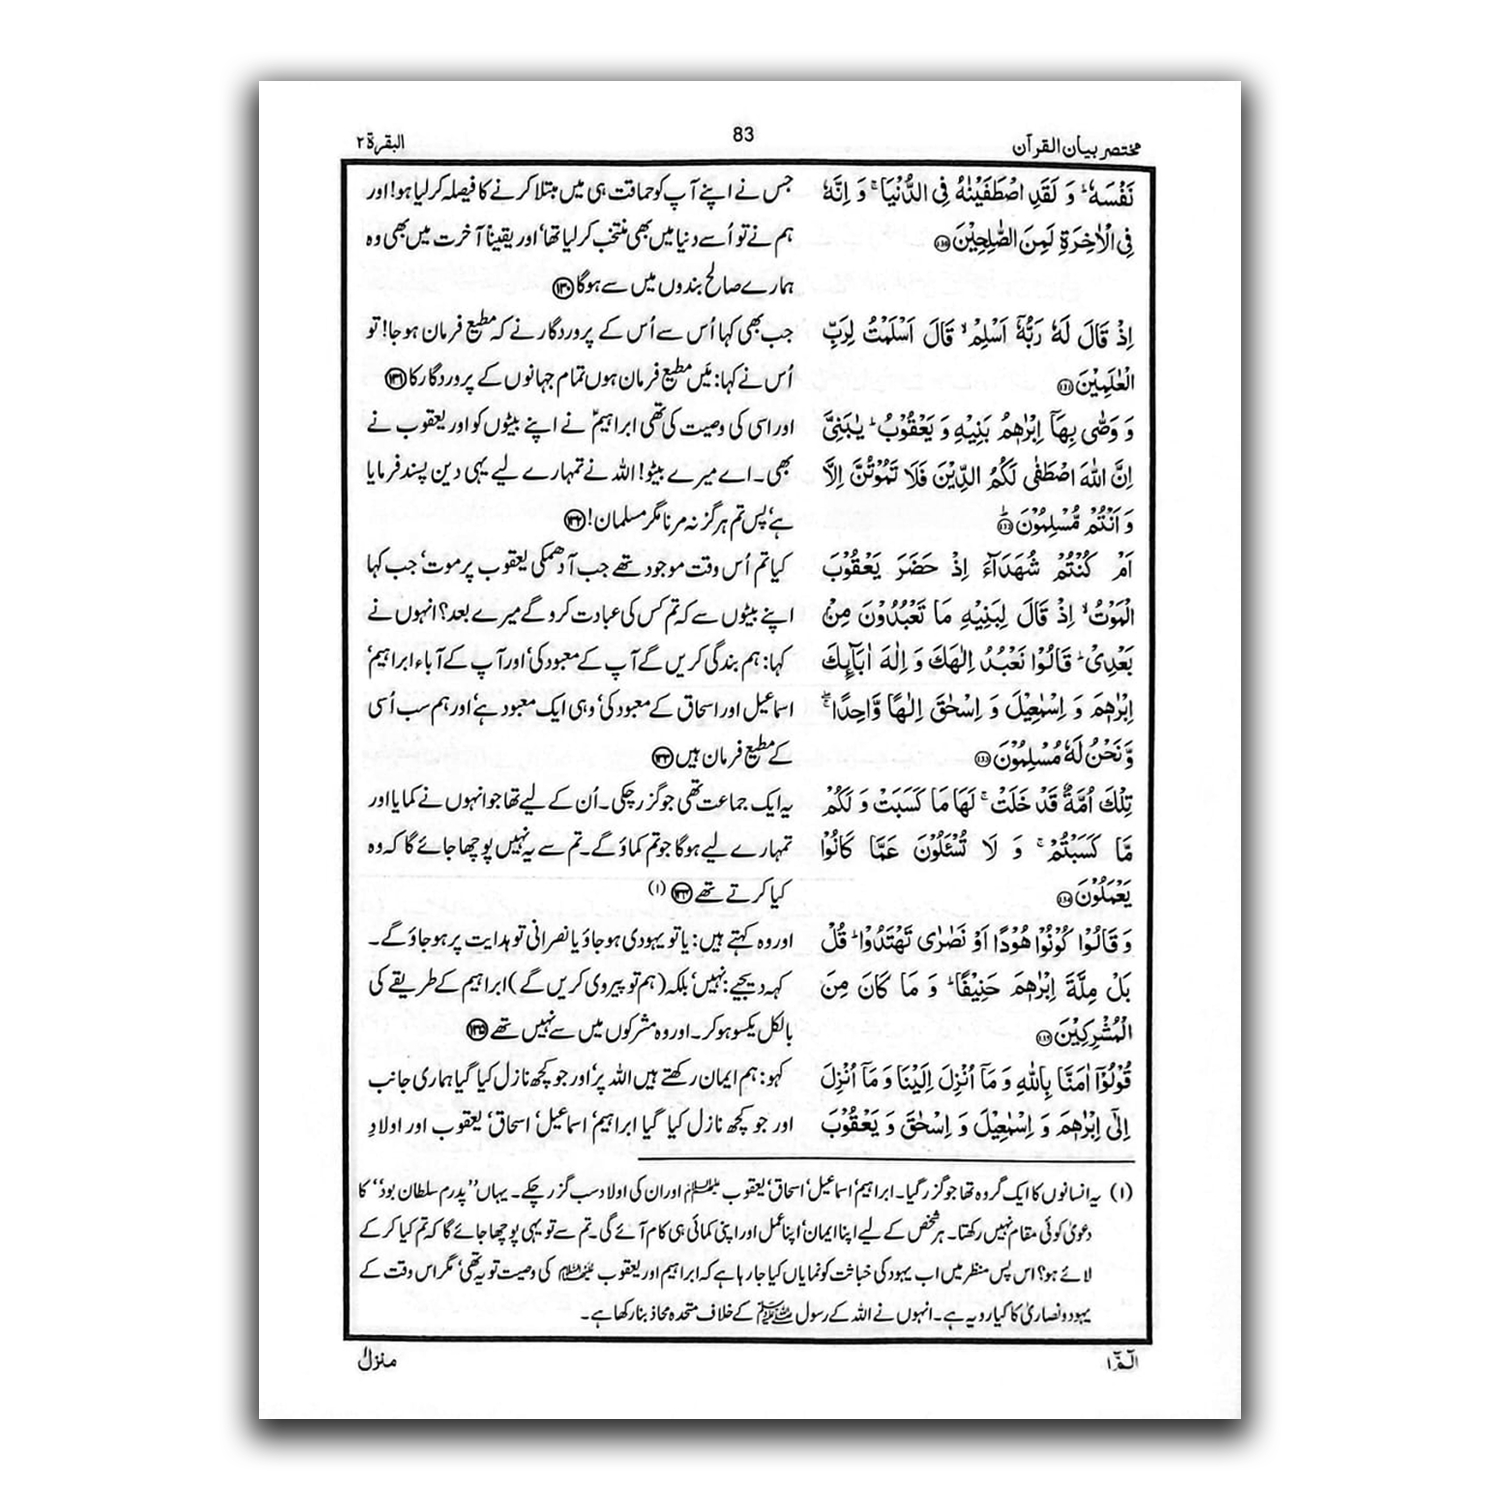 مختصر بیان القرآن
83
البقرۃ ۲
نَفْسَهٗ ؕ وَ لَقَدِ اصْطَفَيْنٰهُ فِي الدُّنْيَا ۚ وَ اِنَّهٗ
فِي الْاٰخِرَةِ لَمِنَ الصّٰلِحِيْنَ ﴿۱۳۰﴾
اِذْ قَالَ لَهٗ رَبُّهٗۤ اَسْلِمْ ۙ قَالَ اَسْلَمْتُ لِرَبِّ
الْعٰلَمِيْنَ ﴿۱۳۱﴾
وَ وَصّٰى بِهَاۤ اِبْرٰهٖمُ بَنِيْهِ وَ يَعْقُوْبُ ؕ يٰبَنِيَّ
اِنَّ اللّٰهَ اصْطَفٰى لَكُمُ الدِّيْنَ فَلَا تَمُوْتُنَّ اِلَّا
وَ اَنْتُمْ مُّسْلِمُوْنَ ؕ﴿۱۳۲﴾
اَمْ كُنْتُمْ شُهَدَآءَ اِذْ حَضَرَ يَعْقُوْبَ
الْمَوْتُ ۙ اِذْ قَالَ لِبَنِيْهِ مَا تَعْبُدُوْنَ مِنْۢ
بَعْدِيْ ؕ قَالُوْا نَعْبُدُ اِلٰهَكَ وَ اِلٰهَ اٰبَآىِٕكَ
اِبْرٰهٖمَ وَ اِسْمٰعِيْلَ وَ اِسْحٰقَ اِلٰهًا وَّاحِدًا ۖۚ
وَّ نَحْنُ لَهٗ مُسْلِمُوْنَ ﴿۱۳۳﴾
تِلْكَ اُمَّةٌ قَدْ خَلَتْ ۚ لَهَا مَا كَسَبَتْ وَ لَكُمْ
مَّا كَسَبْتُمْ ۚ وَ لَا تُسْـَٔلُوْنَ عَمَّا كَانُوْا
يَعْمَلُوْنَ ﴿۱۳۴﴾
وَ قَالُوْا كُوْنُوْا هُوْدًا اَوْ نَصٰرٰى تَهْتَدُوْا ؕ قُلْ
بَلْ مِلَّةَ اِبْرٰهٖمَ حَنِيْفًا ؕ وَ مَا كَانَ مِنَ
الْمُشْرِكِيْنَ ﴿۱۳۵﴾
قُوْلُوْۤا اٰمَنَّا بِاللّٰهِ وَ مَاۤ اُنْزِلَ اِلَيْنَا وَ مَاۤ اُنْزِلَ
اِلٰۤى اِبْرٰهٖمَ وَ اِسْمٰعِيْلَ وَ اِسْحٰقَ وَ يَعْقُوْبَ
جس نے اپنے آپ کو حماقت ہی میں مبتلا کرنے کا فیصلہ کر لیا ہو! اور
ہم نے تو اُسے دنیا میں بھی منتخب کر لیا تھا‘ اور یقیناً آخرت میں بھی وہ
ہمارے صالح بندوں میں سے ہوگا ﴿۱۳۰﴾
جب بھی کہا اُس سے اُس کے پروردگار نے کہ مطیع فرمان ہو جا! تو
اُس نے کہا: مَیں مطیع فرمان ہوں تمام جہانوں کے پروردگار کا ﴿۱۳۱﴾
اور اسی کی وصیت کی تھی ابراہیمؑ نے اپنے بیٹوں کو اور یعقوب نے
بھی۔ اے میرے بیٹو! اللہ نے تمہارے لیے یہی دین پسند فرمایا
ہے‘ پس تم ہرگز نہ مرنا مگر مسلمان! ﴿۱۳۲﴾
کیا تم اُس وقت موجود تھے جب آ دھمکی یعقوب پر موت‘ جب کہا
اپنے بیٹوں سے کہ تم کس کی عبادت کرو گے میرے بعد؟ انہوں نے
کہا: ہم بندگی کریں گے آپ کے معبود کی‘ اور آپ کے آباء ابراہیم‘
اسماعیل اور اسحاق کے معبود کی‘ وہی ایک معبود ہے‘ اور ہم سب اُسی
کے مطیع فرمان ہیں ﴿۱۳۳﴾
یہ ایک جماعت تھی جو گزر چکی۔ اُن کے لیے تھا جو انہوں نے کمایا اور
تمہارے لیے ہوگا جو تم کماؤ گے۔ تم سے یہ نہیں پوچھا جائے گا کہ وہ
کیا کرتے تھے ﴿۱۳۴﴾ (۱)
اور وہ کہتے ہیں: یا تو یہودی ہو جاؤ یا نصرانی تو ہدایت پر ہو جاؤ گے۔
کہہ دیجیے: نہیں‘ بلکہ (ہم تو پیروی کریں گے) ابراہیم کے طریقے کی
بالکل یکسو ہو کر۔ اور وہ مشرکوں میں سے نہیں تھے ﴿۱۳۵﴾
کہو: ہم ایمان رکھتے ہیں اللہ پر‘ اور جو کچھ نازل کیا گیا ہماری جانب
اور جو کچھ نازل کیا گیا ابراہیم‘ اسماعیل‘ اسحاق‘ یعقوب اور اولادِ
(۱) یہ انسانوں کا ایک گروہ تھا جو گزر گیا۔ ابراہیم‘ اسماعیل‘ اسحاق‘ یعقوب علیہم السلام اور ان کی اولاد سب گزر چکے۔ یہاں ’’پدرم سلطان بود‘‘ کا
دعویٰ کوئی مقام نہیں رکھتا۔ ہر شخص کے لیے اپنا ایمان‘ اپنا عمل اور اپنی کمائی ہی کام آئے گی۔ تم سے تو یہی پوچھا جائے گا کہ تم کیا کر کے
لائے ہو؟ اس پس منظر میں اب یہود کی خباثت کو نمایاں کیا جا رہا ہے کہ ابراہیم اور یعقوب علیہما السلام کی وصیت تو یہ تھی‘ مگر اس وقت کے
یہود و نصاریٰ کا کیا رویہ ہے۔ انہوں نے اللہ کے رسول ﷺ کے خلاف متحدہ محاذ بنا رکھا ہے۔
الٓـمّٓ ۱
منزل ۱